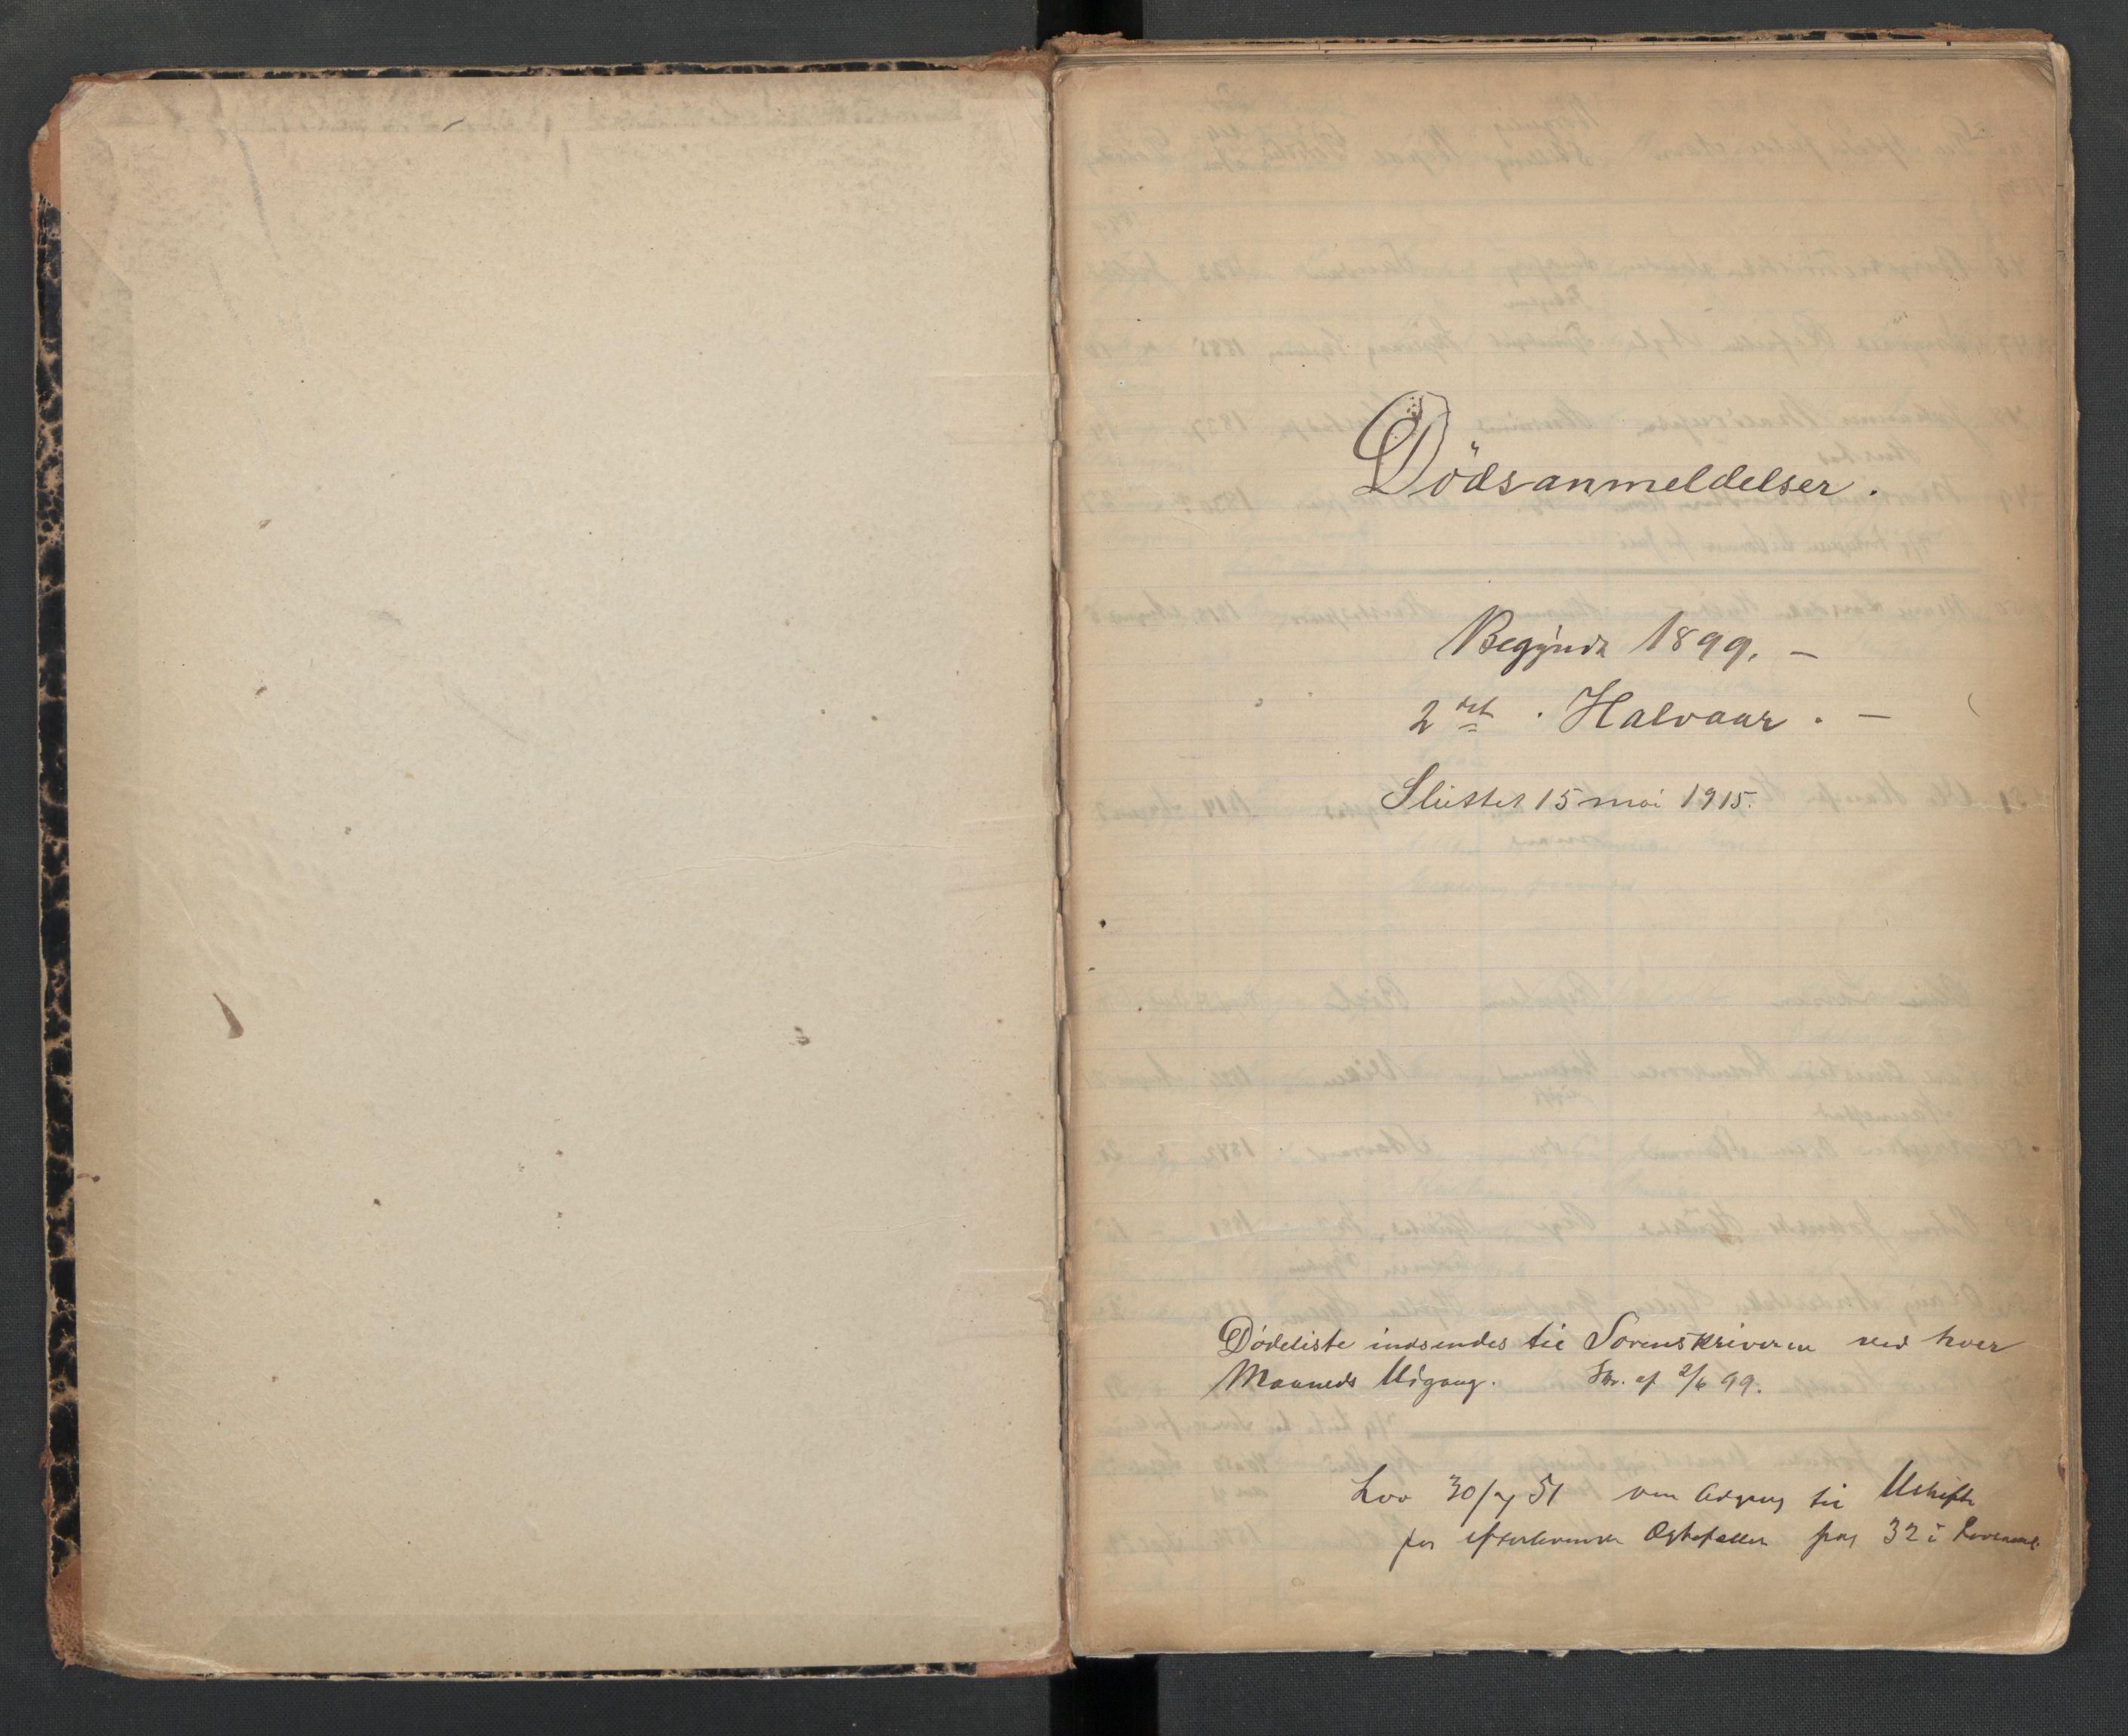 Dödsanmeldelser.
Begÿndt 1899. –
2det. Halvaar. –
Sluttet 15 mai 1915.
Dödeliste indsendes til Sorenskriveren ved hver
Maaneds Udgang. Skr. af 2/6 99.
Lov 30/7 51 om Adgang til Uskifte
for efterlevende Ægtefæller pag 32 i